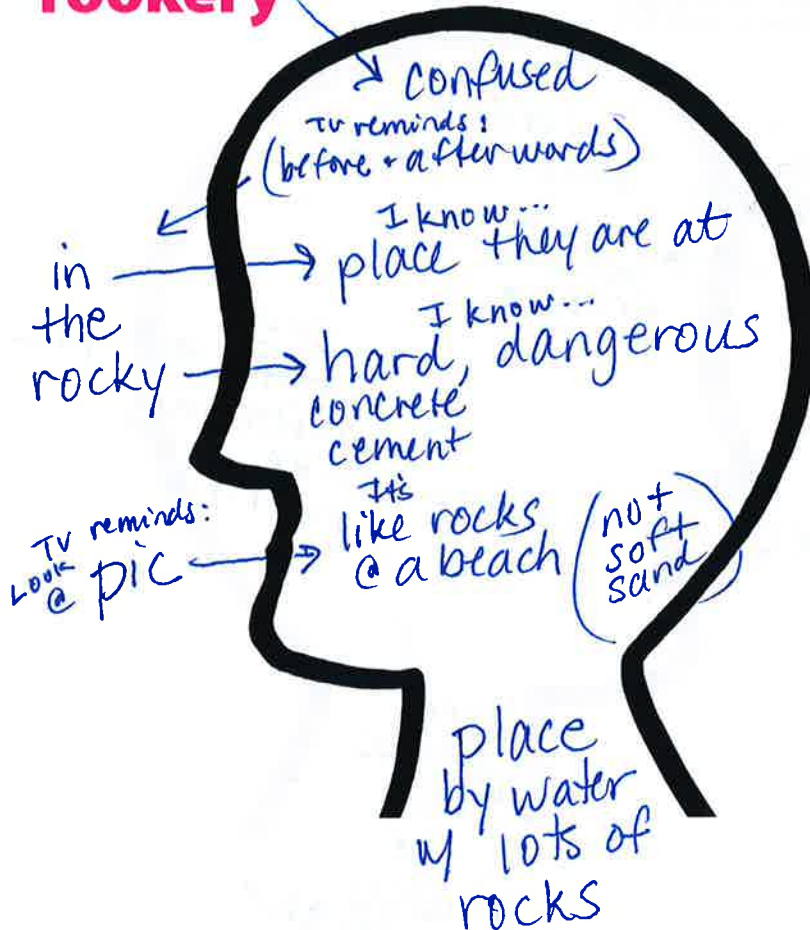 rookery
confused
TV reminds:
(before + after words)
I know...
in → place they are at
the
I know...
rocky → hard, dangerous
concrete
cement
TV reminds:
Look @ pic → It's like rocks @ a beach (not soft sand)
place
by water
w/ lots of
rocks